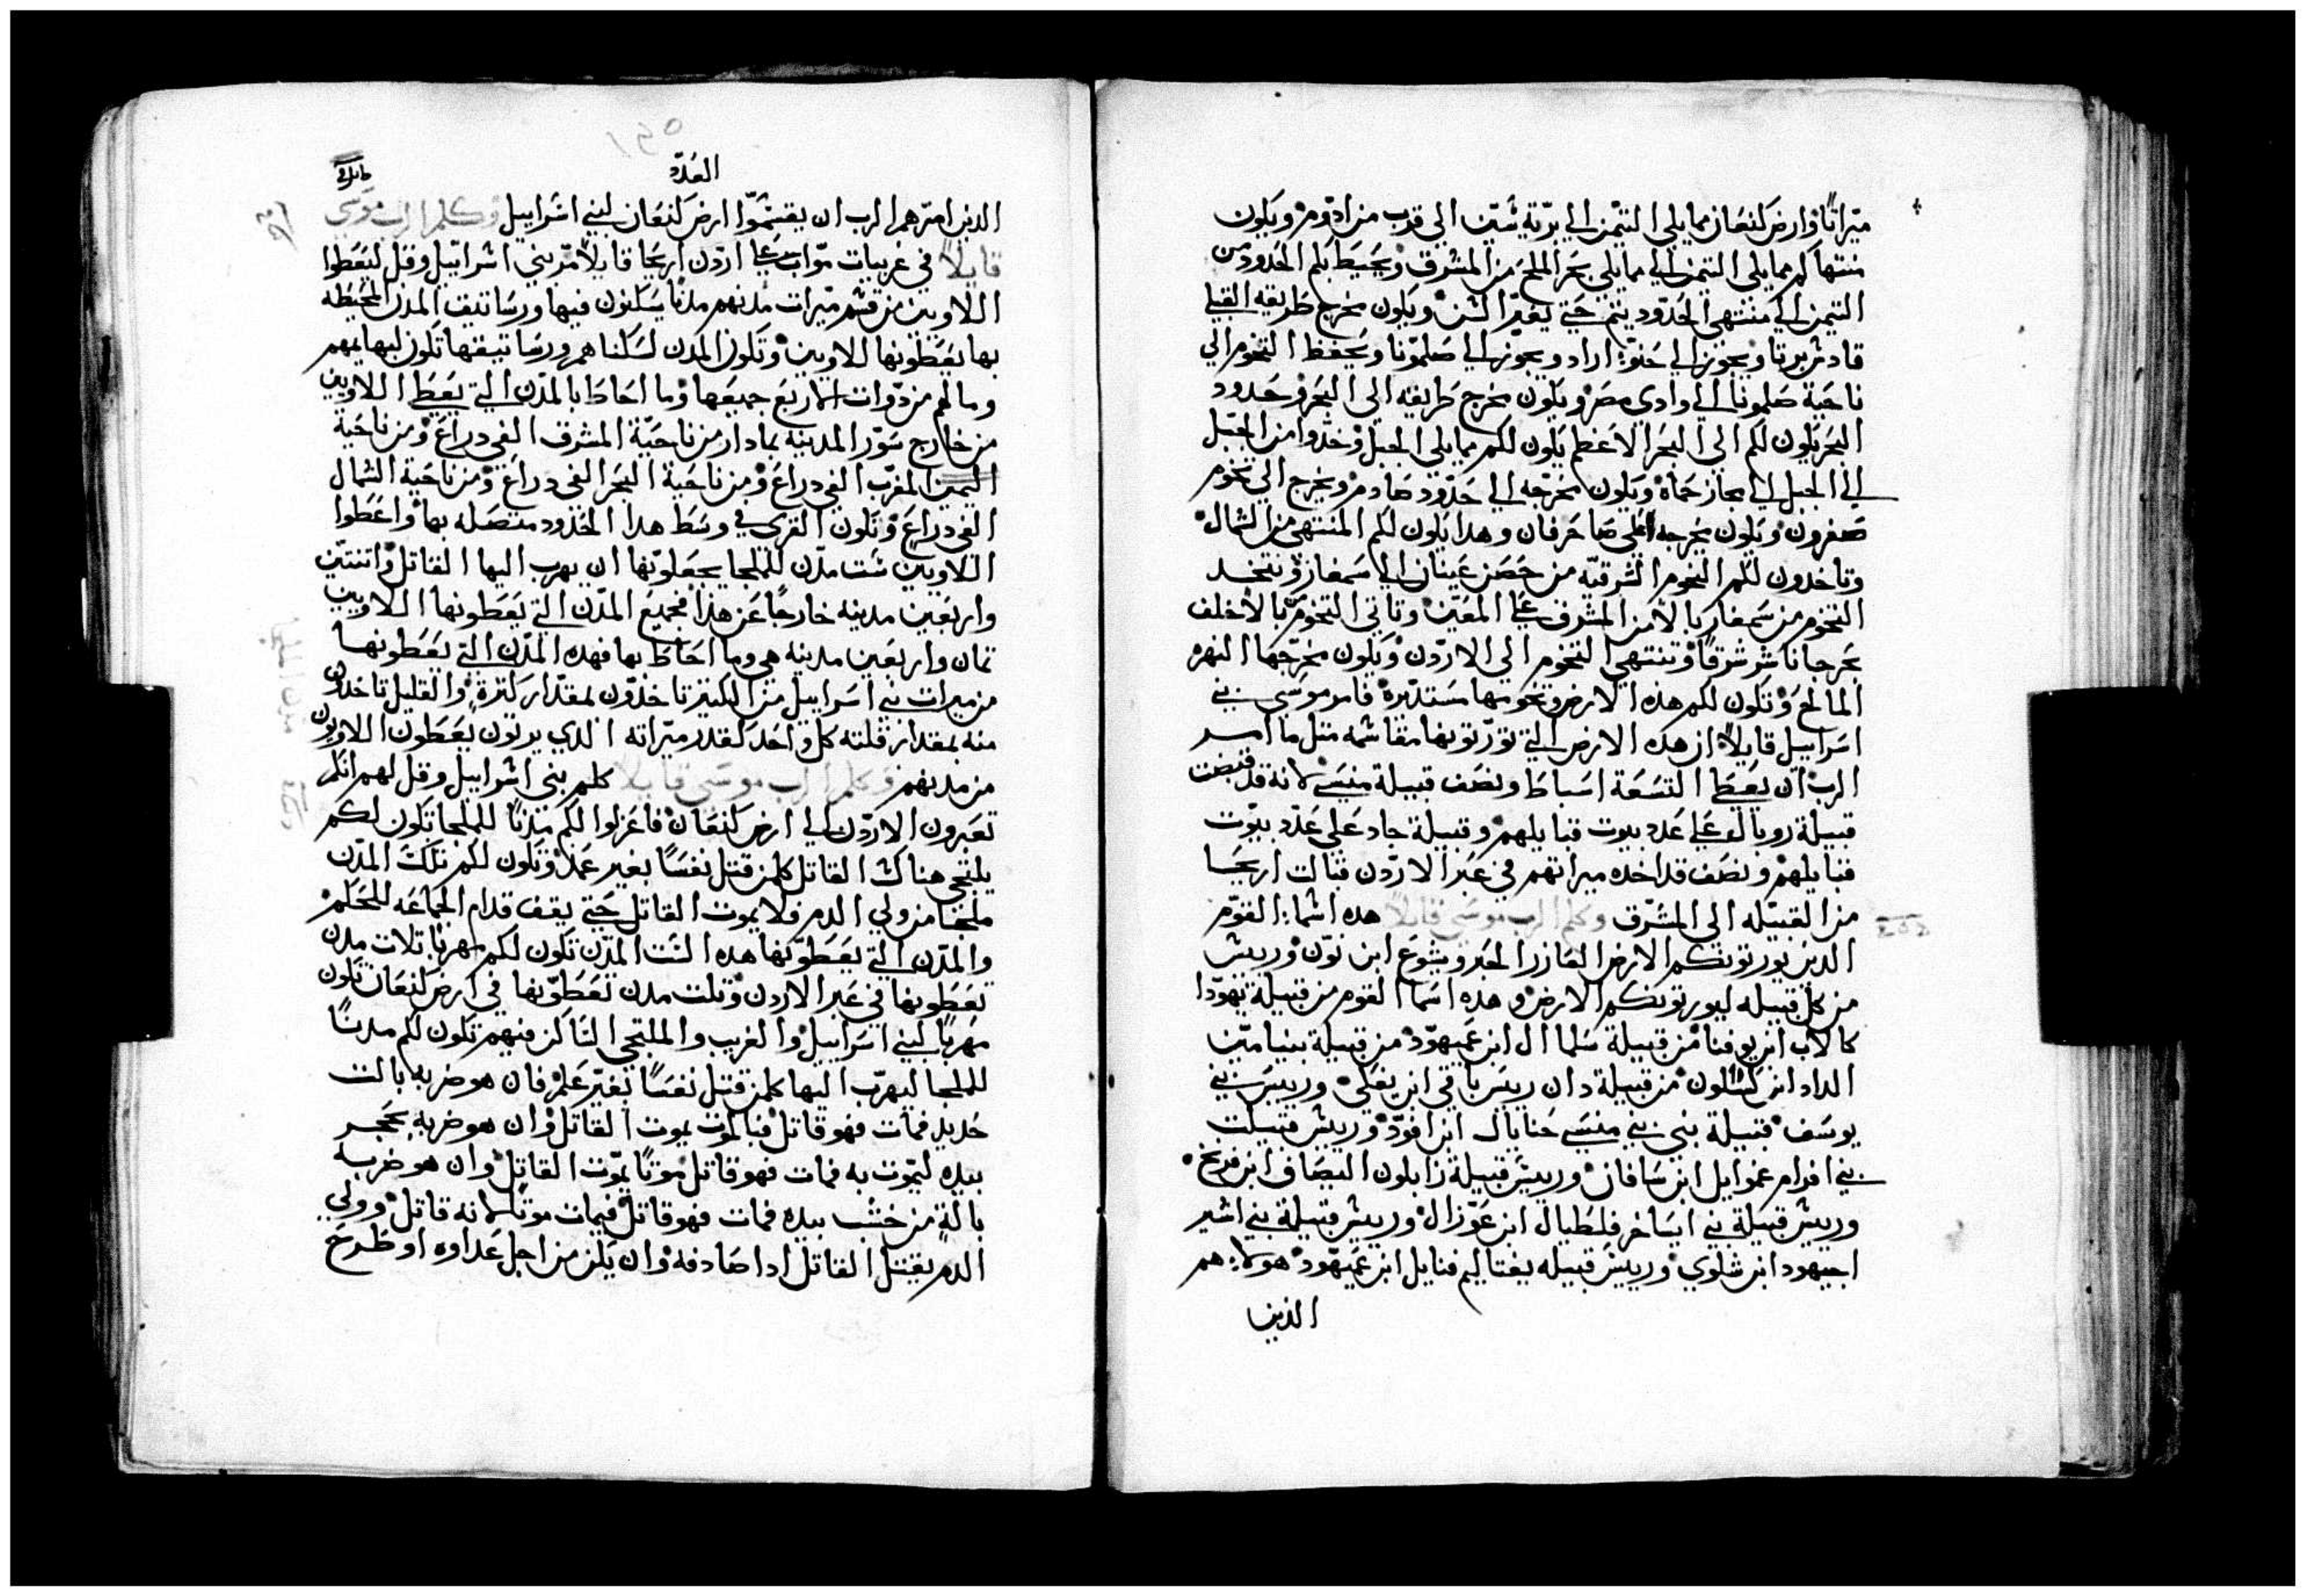 ميراتا وارض كنعان مما يلي التيمن الي برية شين الي قرب من ادوم ويكون
منتهاكم مما يلي التيمن الي مما يلي بحر الملح من المشرق ويحيط بكم الحدود من
التيمن الي منتهي الحدود يتم حتي يعبر الشن ويكون مخرج طريقه القبلي
قادش برنا ويجوز الي اراد ويجوز الي صلمونا ويحفظ التخوم الي
ناحية صلمونا الي وادي مصر ويكون مخرج طريقه الي البحر وحدود
البحر يكون لكم الي البحر الاعظم يكون لكم مما يلي الجبل وخدوا من الجبل
الي الجبل الي مجاز حماه ويكون مخرجه الي حدود صادم ويخرج الي تخوم
صفرون ويكون مخرجه الي صاحرفان وهدا يكون لكم المنتهي من الشمال
وتاخدون لكم التخوم الشرقيه من حصن عينان الي سمغار ويتخد
التخوم من سمغار بالا من المشرق علي المعين وتاتي التخوم بالا خلف
بحر جاناشر شرقا وتنتهي التخوم الي الاردن ويكون مخرجها النهر
المالح وتكون لكم هذه الارض وتخومها مستديرة فامر موسي بني
اسراييل قايلا ان هده الارض التي تورتونها مقاسمه متل ما امر
الرب ان يعطي التسعة اسباط ونصف قبيلة منسي لانه قد قبضت
قبيلة روبال علي عدد بيوت قبايلهم وقبيلة جاد علي عدد بيوت
قبايلهم ونصف قد اخده ميراتهم في عبر الاردن قبالت اريحا
من القبيله الي المشرق وكلم الرب موسي قايلا هده اسما القوم
الدين يورتونكم الارض العازر الحبر ويشوع ابن نون وريس
من كل قبيله ليورتونكم الارض وهذه اسما القوم من قبيلة يهودا
كالاب ابن يوفنا من قبيلة سلما ال ابن عميهود من قبيلة بنيامين
الداد ابن كسلون من قبيلة دان ريس باقي ابن يغلي وريس بني
يوسف قبيلة بني بني منسي حنايال ابن افود وريس قبيلت
بني افرام عموايل ابن سافان وريس قبيلة زابلون اليصافى ابن فريح
وريس قبيلة بني ايساخر فلطيال ابن عوزال وريس قبيلة بني اشير
اجيهود ابن شلوي وريس قبيله يفتاليم فنايل ابن عميهود هولا هم
الذين
١٢٥
العدد
الذين امرهم الرب ان يقسموا ارض كنعان لبني اسراييل وكلم الرب موسي
قايلا في غربيات مواب علي اردن اريحا قايلا مر بني اسراييل وقل ليعطوا
اللاويين من قسم ميرات مدنهم مدنا يسكنون فيها ورساتيف المدن المحيطه
بها يعطونها اللاويين وتكون المدن لسكناهم ورساتيقها تكون لبهايمهم
وما لهم من دوات الاربع جميعها وما احاط بالمدن التي يعطا اللاويين
من خارج سور المدينه بما دار من ناحية المشرق الفي دراع ومن ناحية
التيمن المغرب الفي دراع ومن ناحية البحر الفي دراع ومن ناحية الشمال
الفي دراع وتكون القري في وسط هدا الحدود متصله بها واعطوا
اللاويين ست مدن للملجا يجعلونها ان يهرب اليها القاتل واتنتين
واربعين مدينه خارجا عن هذا فجميع المدن التي يعطونها اللاويين
تمان واربعين مدينه هي وما احاط بها فهده المدن التي يعطونها
من ميرات بني اسراييل من الكتير تاخدون بمقدار كترة والقليل تاخدون
منه بمقدار قلته كل واحد كقدر ميراته الدي يرتون يعطون اللاويون
من مدنهم وكلم الرب موسي قايلا كلم بني اسراييل وقل لهم انكم
تعبرون الاردن الي ارض كنعان فاعزلوا لكم مدنا للملجا تكون لكم
يلتجي هناك القاتل كلمن قتل نفسا بغير عمد وتكون لكم تلك المدن
ملجا من ولي الدم ولا يموت القاتل حتي يقف قدام الجماعه للحكم
والمدن التي يعطونها هده الست المدن تكون لكم مهربا تلات مدن
تعطونها في عبر الاردن وتلت مدن تعطونها في ارض كنعان تكون
مهربا لبني اسراييل والغريب والملتجي الساكن فيهم تكون لكم مدنا
للملجا ليهرب اليها كلمن قتل نفسا بغير علم فان هو ضربه بالت
حديد فمات فهو قاتل فبالموت يموت القاتل وان هو ضربه بحجر
بيده ليموت به فمات فهو قاتل موتا يموت القاتل وان هو ضربه
بالة من خشب بيده فمات فهو قاتل فيمات موتا لانه قاتل وولي
الدم يقتل القاتل ادا صادفه وان يكن من اجل عداوه او طرح
مدن الملجا